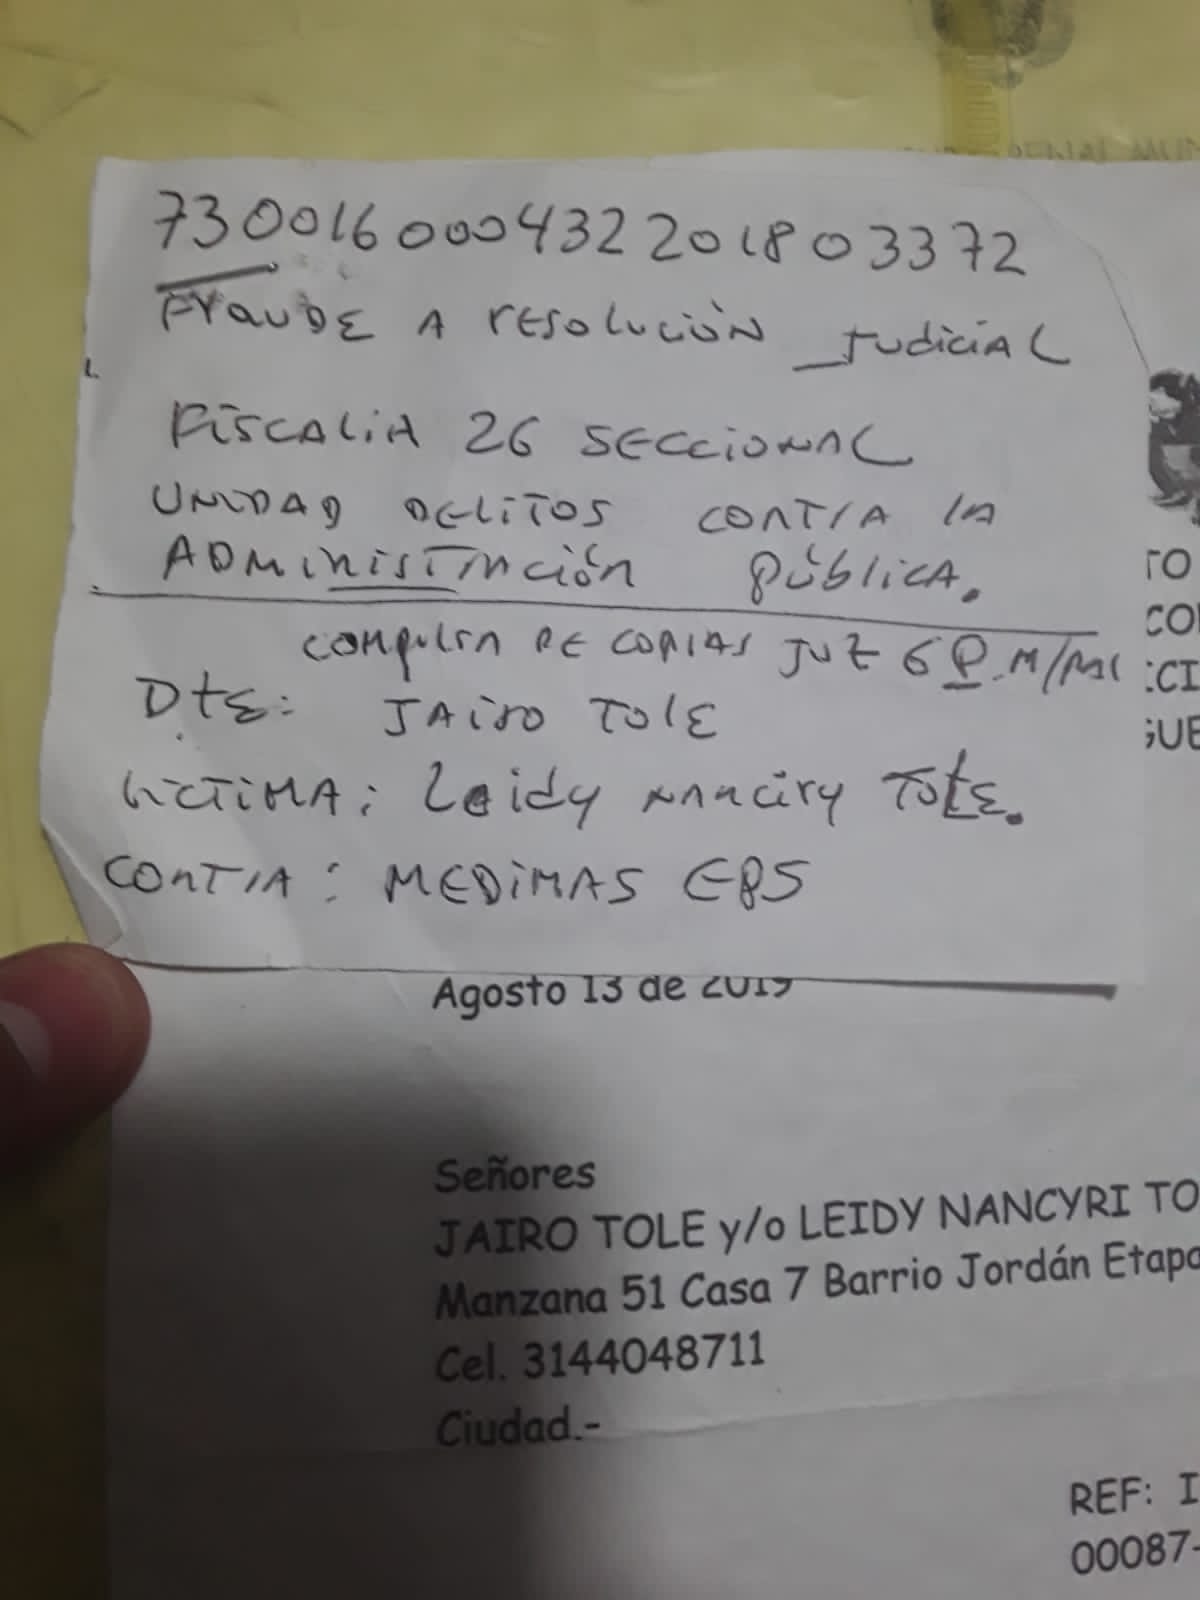 730016000432201803372
FraudE A rEsolución Judicial
FiscaliA 26 SECCionAL
UNIDAD DELiTOS CONTrA lA
ADMinisTración Pública.
COMPULSA DE COPIAS JUZ 6 P. M/PAL
DtE: JAiro TolE
VíCTiMA: Leidy NANciry TolE.
CONTrA: MEDiMAS EPS
Agosto 13 de 2019
TO
CO
CI
GUE
Señores
JAIRO TOLE y/o LEIDY NANCYRI TO
Manzana 51 Casa 7 Barrio Jordán Etapa
Cel. 3144048711
Ciudad.-
REF: I
00087-